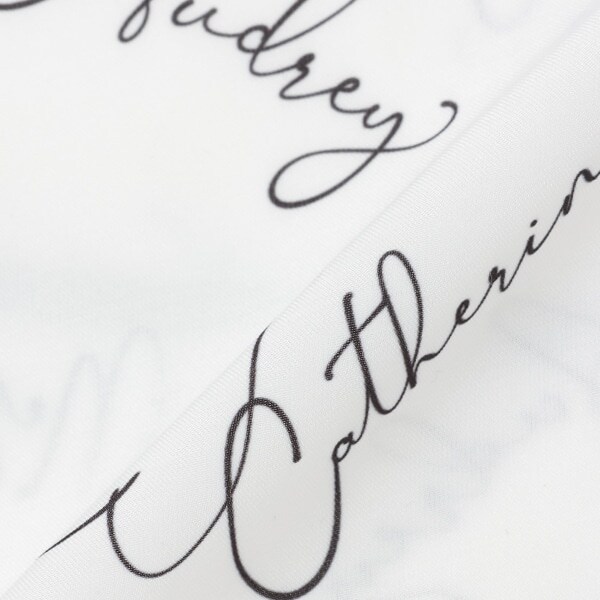 Audrey
Catherin